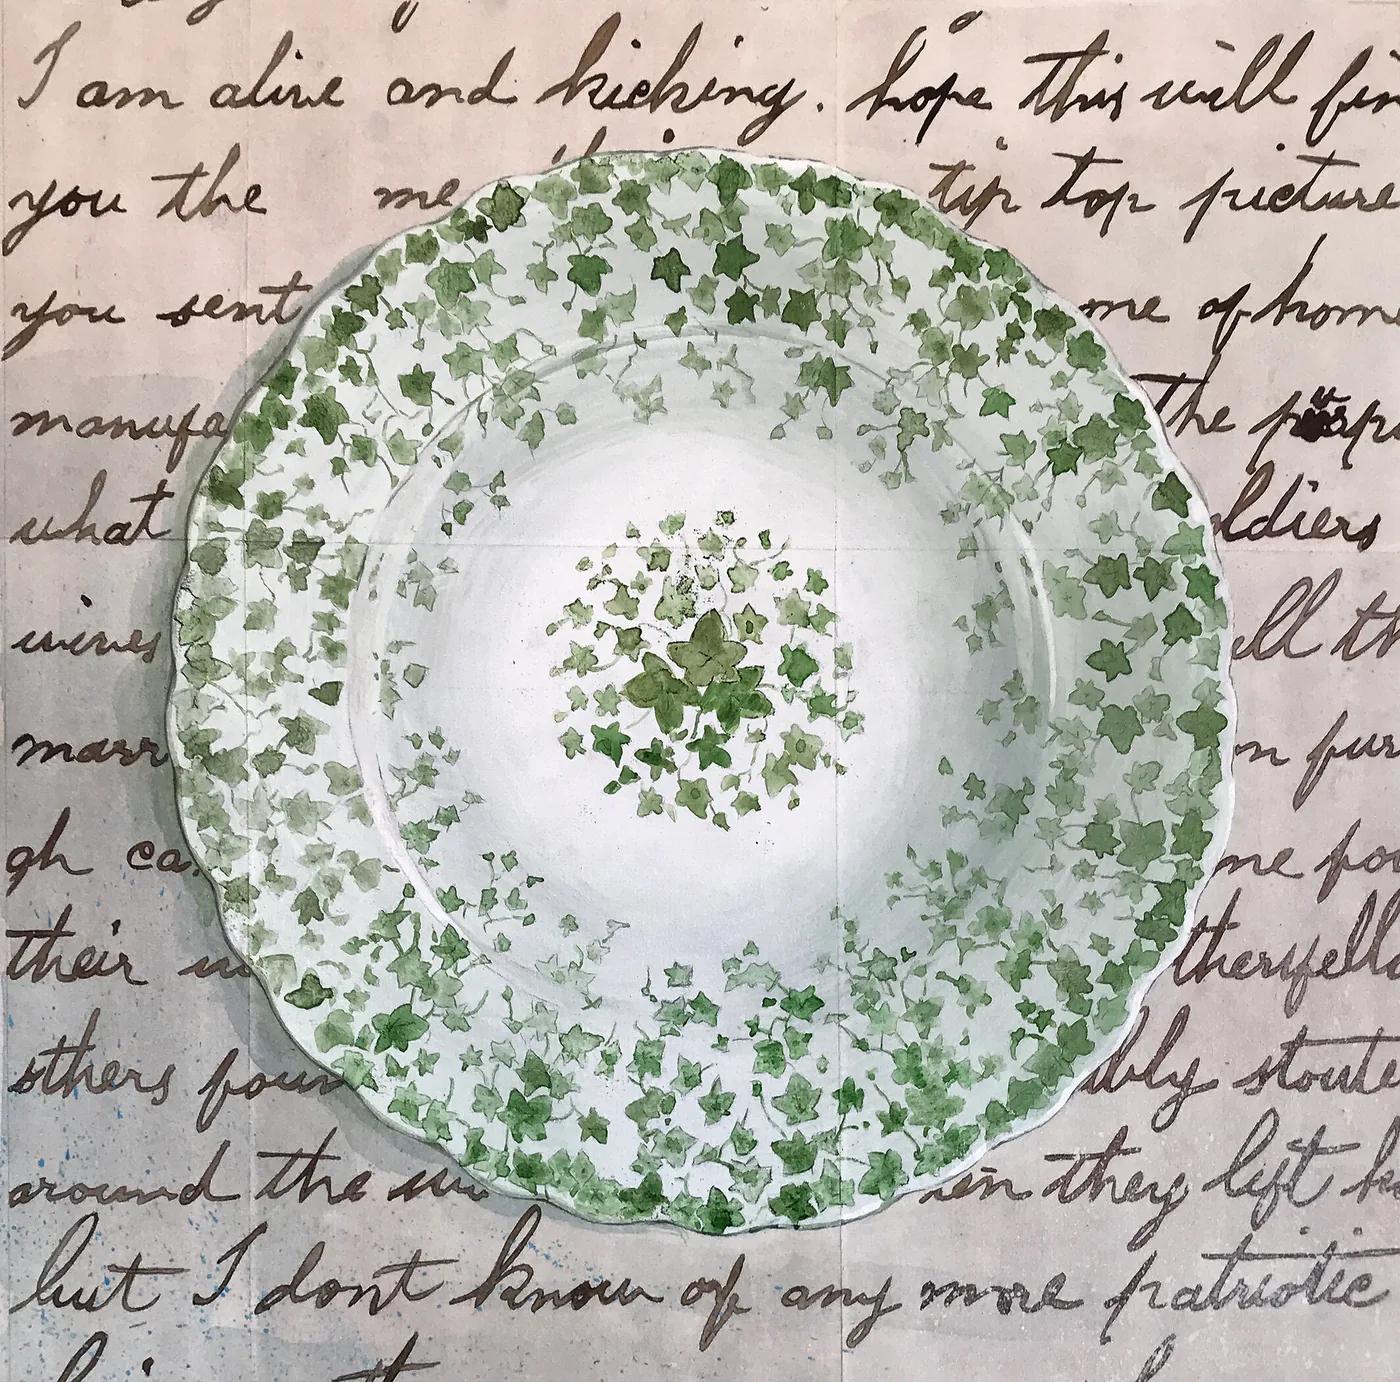 I am alive and kicking. hope this will fin
you the me tip top picture
you sent me of home
manufa the
what ldiers
wives ell th
marr n fur
gh ca. me for
their w
others foun bly stoute
around the wi en they left h
but I dont know of any more patriotic